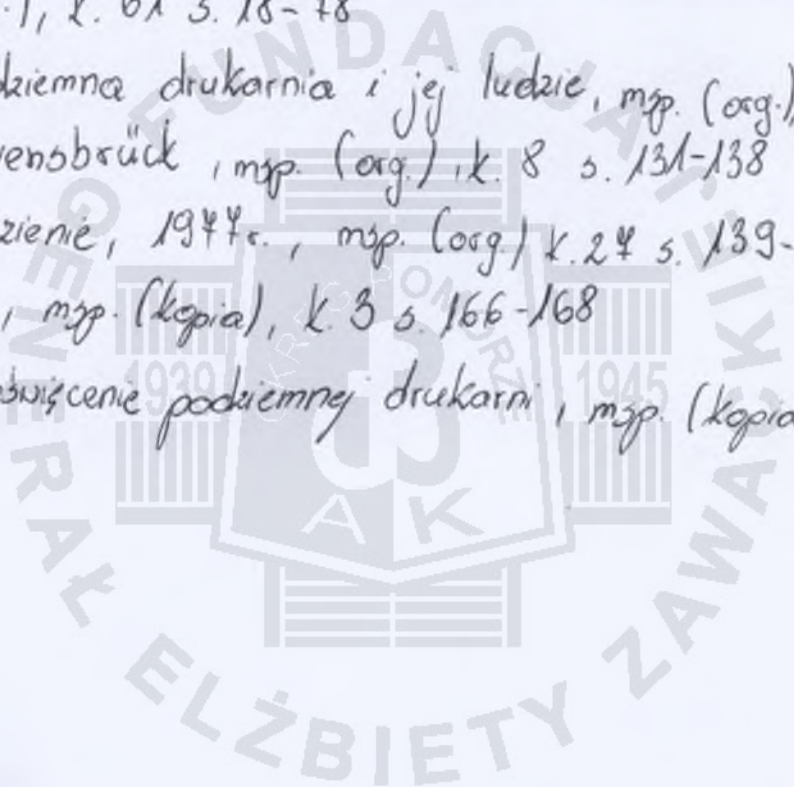 1, k. 61 s. 18-78
dziemna drukarnia i jej ludzie, msp. (org.),
vensbrück, msp. (org.), k. 8 s. 131-138
zienie, 1977r., msp. (org.) k. 27 s. 139-
, msp. (kopia), k. 3 s. 166-168
oświęcenie podziemnej drukarni, msp. (kopia
FUNDACJA GENERAŁ ELŻBIETY ZAWACKIEJ
OKRĘG POMORZE
1939 1945
AK